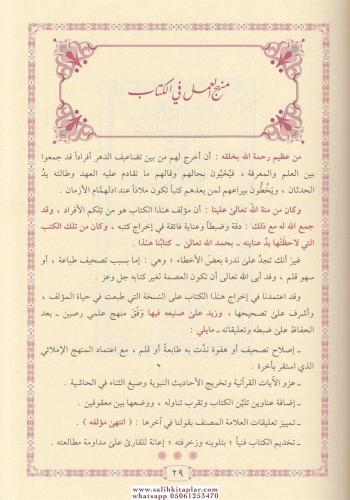 منهج العمل في الكتاب
من عظيم رحمة الله بخلقه : أن أخرج لهم من بين تضاعيف الدهر أفراداً قد جمعوا
بين العلم والمعرفة ، فيُحْيُون بحالهم وقالهم ما تقادم عليه العهد وطالته يدُ
الحدثان ، ويَخُطُّون بيراعهم لمن بعدهم كتباً تكون ملاذاً عند ادلهمام الأزمان .
وكان من منة الله تعالىٰ علينا : أن مؤلف هٰذا الكتاب هو من تِلكم الأفراد ، وقد
جمع الله له مع ذلك : دقة وضبطاً وعناية فائقة في إخراج كتبه ، وكان من تلك الكتب
التي لاحظَتْها يدُ عنايته ـ بحمد الله تعالىٰ ـ كتابُنا هٰذا .
غيرَ أنك تجدُ علىٰ ندرة بعضَ الأخطاء ؛ وهي : إما بسبب تصحيف طباعة ، أو
سهو قلم ، وقد أبى الله تعالىٰ أن تكون العصمة لغير كتابه جل وعز .
وقد اعتمدنا في إخراج هٰذا الكتاب على النسخة التي طبعت في حياة المؤلف ،
وأشرف علىٰ تصحيحها ، وزيد علىٰ صنيعه فيها وَفْقَ منهج علمي رصين ـ بعد
الحفاظ علىٰ ضبطه وتعليقاته ـ مايلي :
ـ إصلاح تصحيف أو هفوة نَدَّت به طابعةٌ أو قلم ، مع اعتماد المنهج الإملائي
الذي استقر بأخرة .
ـ عزو الآيات القرآنية وتخريج الأحاديث النبوية وصيغ الثناء في الحاشية .
ـ إضافة عناوين تليِّن الكتاب وتقرب تناوله ، ووضعها بين معقوفين .
ـ تمييز تعليقات العلامة المصنف بقولنا في آخرها : ( انتهىٰ مؤلفه ) .
ـ تخديم الكتاب فنياً ؛ بتلوينه وزخرفته ؛ إعانة للقارئ علىٰ مداومة مطالعته .
* * *
٢٩
www.salihkitaplar.com
whatsapp 05061253470